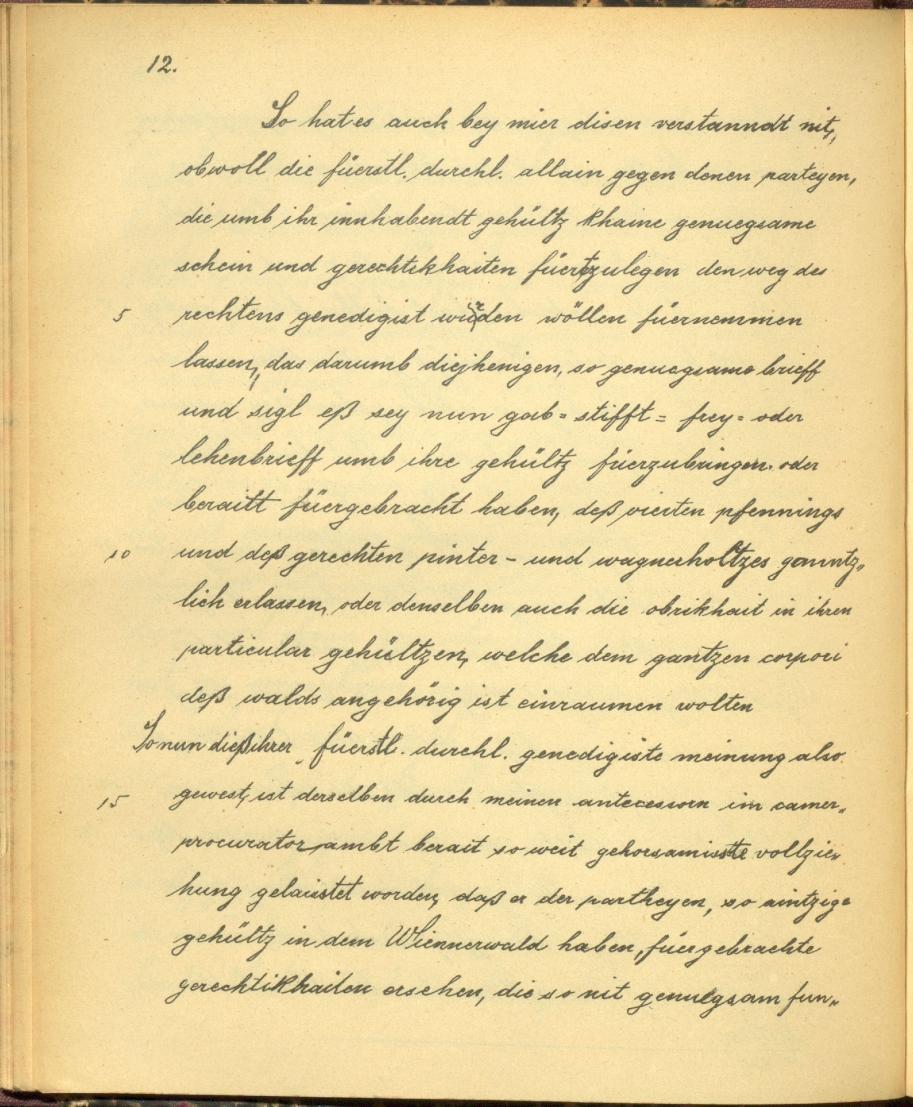 12.
So hat es auch bey mier disen verstanndt nit,
obwoll die füerstl. durchl. allain gegen denen parteyen,
die umb ihr innhabendt gehültz khaine genuegsame
schein und gerechtikhaiten füerzulegen den weg des
5 rechtens genedigist würden wöllen füernemmen
lassen, das darumb diejhenigen, so genuegsame brieff
und sigl eß sey nun gab= stifft= frey= oder
lehenbrieff umb ihre gehültz füerzubringen oder
beraitt füergebracht haben, deß vierten pfennings
10 und deß gerechten pinter- und wagnerholtzes ganntz„
lich erlassen, oder denselben auch die obrikhait in ihren
particular gehültzen, welche dem gantzen corpori
deß walds angehörig ist einraumen wolten
So nun dieß ihrer füerstl. durchl. genedigiste meinung also
15 gewest, ist derselben durch meinen antecessorn im camer„
procurator ambt berait so weit gehorsamiste vollzie„
hung gelaistet worden, daß er der partheyen, so aintzige
gehültz in dem Wiennerwald haben, füergebrachte
gerechtikhaiten ersehen, die so nit genuegsam fun„